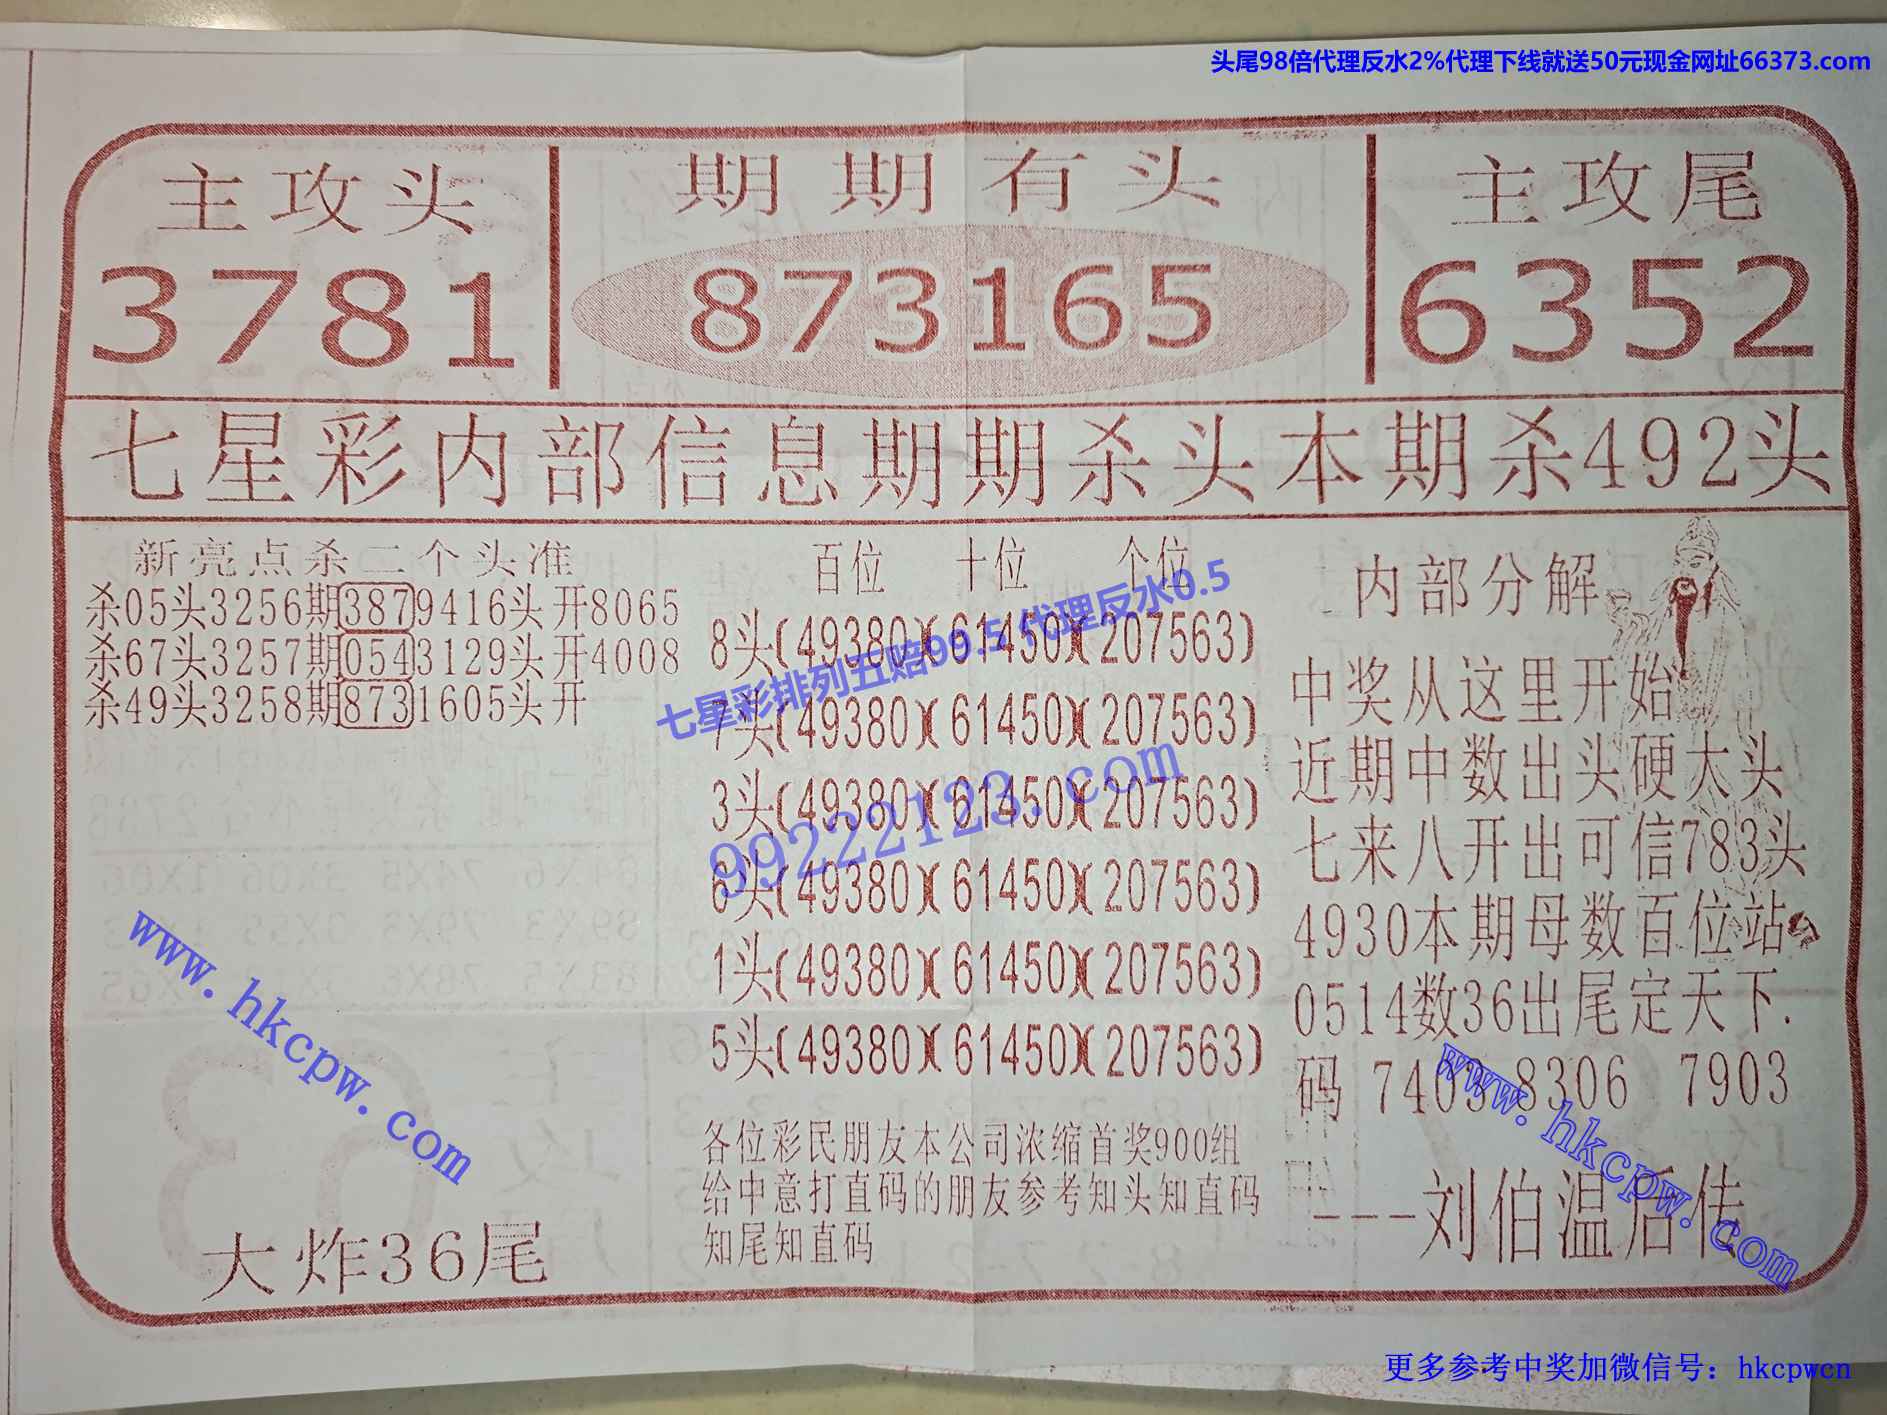 头尾98倍代理反水2%代理下线就送50元现金网址66373.com
主攻头
3781
期期有头
873165
主攻尾
6352
七星彩内部信息期期杀头本期杀492头
新亮点杀二个头准
杀05头3256期3879416头开8065
杀67头3257期0543129头开4008
杀49头3258期8731605头开
大炸36尾
百位 十位 个位
8头(49380)(61450)(207563)
7头(49380)(61450)(207563)
3头(49380)(61450)(207563)
6头(49380)(61450)(207563)
1头(49380)(61450)(207563)
5头(49380)(61450)(207563)
七星彩排列五赔99.5 代理反水0.5
99222123.com
各位彩民朋友本公司浓缩首奖900组
给中意打直码的朋友参考知头知直码
知尾知直码
内部分解
中奖从这里开始
近期中数出头硬大头
七来八开出可信783头
4930本期母数百位站
0514数36出尾定天下.
码 7403 8306 7903
---刘伯温后传
www.hkcpw.com
www.hkcpw.com
更多参考中奖加微信号：hkcpwcn